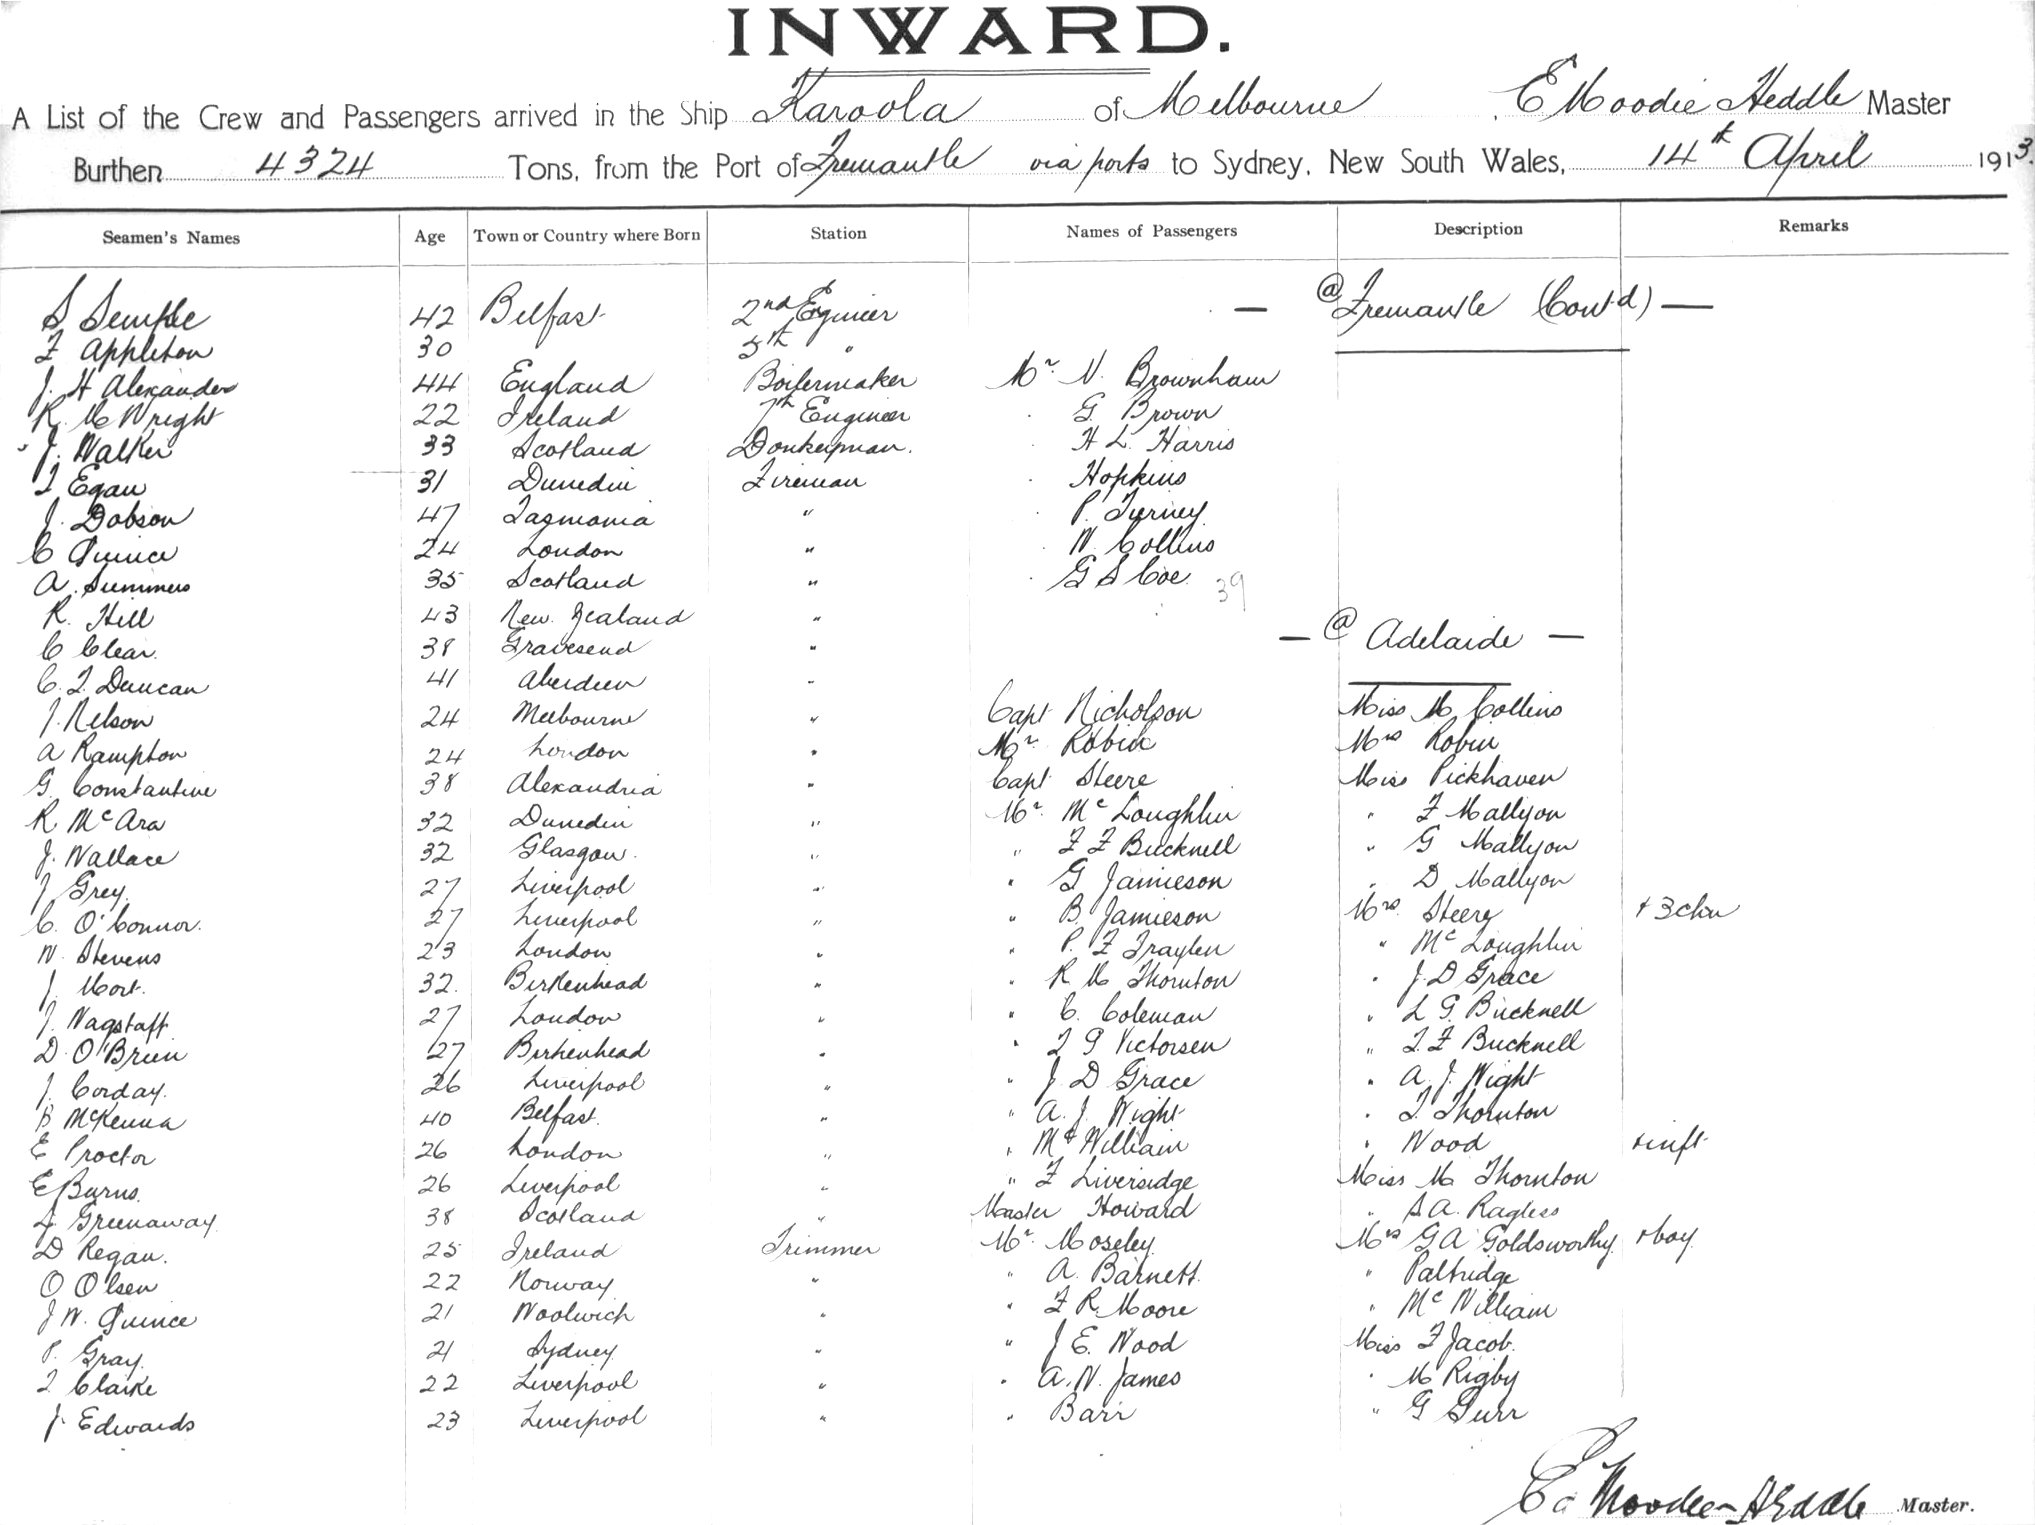 INWARD.
A List of the Crew and Passengers arrived in the Ship Karoola of Melbourne, E Moodie Heddle Master
Burthen 4324 Tons, from the Port of Fremantle via ports to Sydney, New South Wales, 14th April 1913.
Seamen's Names Age Town or Country where Born Station Names of Passengers Description Remarks
S Semple 42 Belfast 2nd Egineer — @ Fremantle (Contd) —
F Appleton 30 5th "
J. H Alexander 44 England Boilermaker Mr. N. Brownham
R. M Wright 22 Ireland 7th Engineer . G. Brown
" J. Walker 33 Scotland Donkeyman. . H L. Harris
T Egan 31 Dunedin Fireman . Hopkins
J. Dobson 47 Tasmania " . P. Tierney
C Quince 24 London " . W. Collins
A. Summers 35 Scotland " . G S Coe. 39
R. Hill 43 New Zealand "
C Clear. 38 Gravesend " — @ Adelaide —
C. T. Duncan 41 Aberdeen "
J. Nelson 24 Melbourne " Capt Nicholson Miss M Collins
A Rampton 24 London " Mr. Robin Mrs Robin
G. Constantine 38 Alexandria " Capt Steere Miss Pickhaven
R McAra 32 Dunedin " Mr. McLoughlin " F Mallyon
J. Wallace 32 Glasgow. " " F F Bucknell " G Mallyon
J Grey. 27 Liverpool " " G Jamieson " D Mallyon
C. O'Connor. 27 Liverpool " " B. Jamieson Mrs. Steere + 3 chn
W Stevens 23 London " " P. F Traylen " McLoughlin
J. Mort. 32. Birkenhead " " R M Thornton " J. D Grace
J. Wagstaff 27 London " " C. Coleman " L G. Bucknell
D. O'Brien 27 Birkenhead " " T G Victorsen " T. F Bucknell
J. Corday. 26 Liverpool " " J. D Grace " A. J. Wight
B McKenna 40 Belfast. " " A. J. Wight " T. Thornton
E Proctor 26 London " " McWilliam " Wood + inft
E Burns. 26 Liverpool " " F Liversidge Miss M Thornton
J. Greenaway. 38 Scotland " Master Howard " S. A. Ragless
D Regan. 25 Ireland Trimmer Mr. Moseley Mrs G A Goldsworthy + boy.
O Olsen 22 Norway " " A. Barnett. " Paltridge
J W. Quince 21 Woolwich " " F R. Moore " McWilliam
P. Gray. 21 Sydney " " J E. Wood Miss F Jacob.
T Clarke 22 Liverpool " " A. W. James " M Rigby
J. Edwards 23 Liverpool " " Barr " G Gurr
E Moodie Heddle Master.